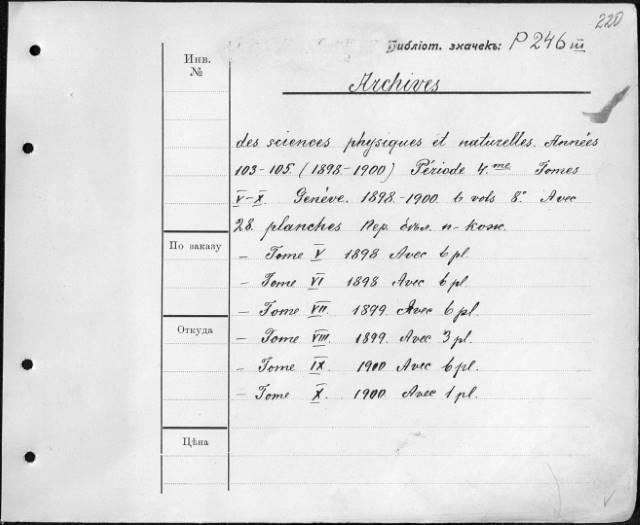 220
Библіот. значекъ: P 246 III
Инв.
№
Archives
des sciences physiques et naturelles. Années
103-105. (1898-1900) Période 4.me Tomes
V-X. Genève. 1898.-1900. 6 vols 8° Avec
28. planches Пер. бѣл. п-кож.
По заказу
– Tome V 1898 Avec 6 pl.
– Tome VI 1898 Avec 6 pl.
– Tome VII. 1899. Avec 6 pl.
Откуда
– Tome VIII. 1899. Avec 3 pl.
– Tome IX. 1900 Avec 6 pl.
– Tome X. 1900 Avec 1 pl.
Цѣна